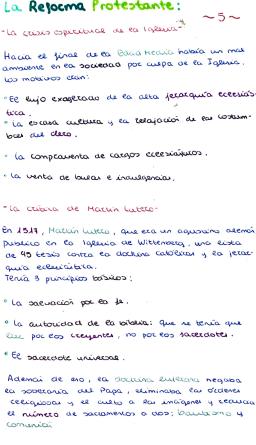 La Reforma Protestante:
~5~
-La crisis espiritual de la Iglesia-
Hacia el final de la Edad Media había un mal
ambiente en la sociedad por culpa de la Iglesia.
Los motivos eran:
°El lujo exagerado de la alta jerarquía eclesiás-
tica.
° La escasa cultura y la relajación de las costum-
bres del clero.
° La compraventa de cargos eclesiásticos.
° La venta de bulas e indulgencias.
-La crítica de Martín Lutero-
En 1517, Martín Lutero, que era un agustino alemán
publicó en la Iglesia de Wittenberg, una lista
de 95 tesis contra la doctrina católica y la jerar-
quía eclesiástica.
Tenía 3 principios básicos:
° La salvación por la fe.
° La autoridad de la biblia: que se tenía que
leer por los creyentes, no por los sacerdotes.
° El sacerdote universal.
Además de eso, la doctrina luterana negaba
la soberanía del Papa, eliminaba las órdenes
religiosas y el culto a las imágenes y reducía
el número de sacramentos a dos: bautismo y
comunión